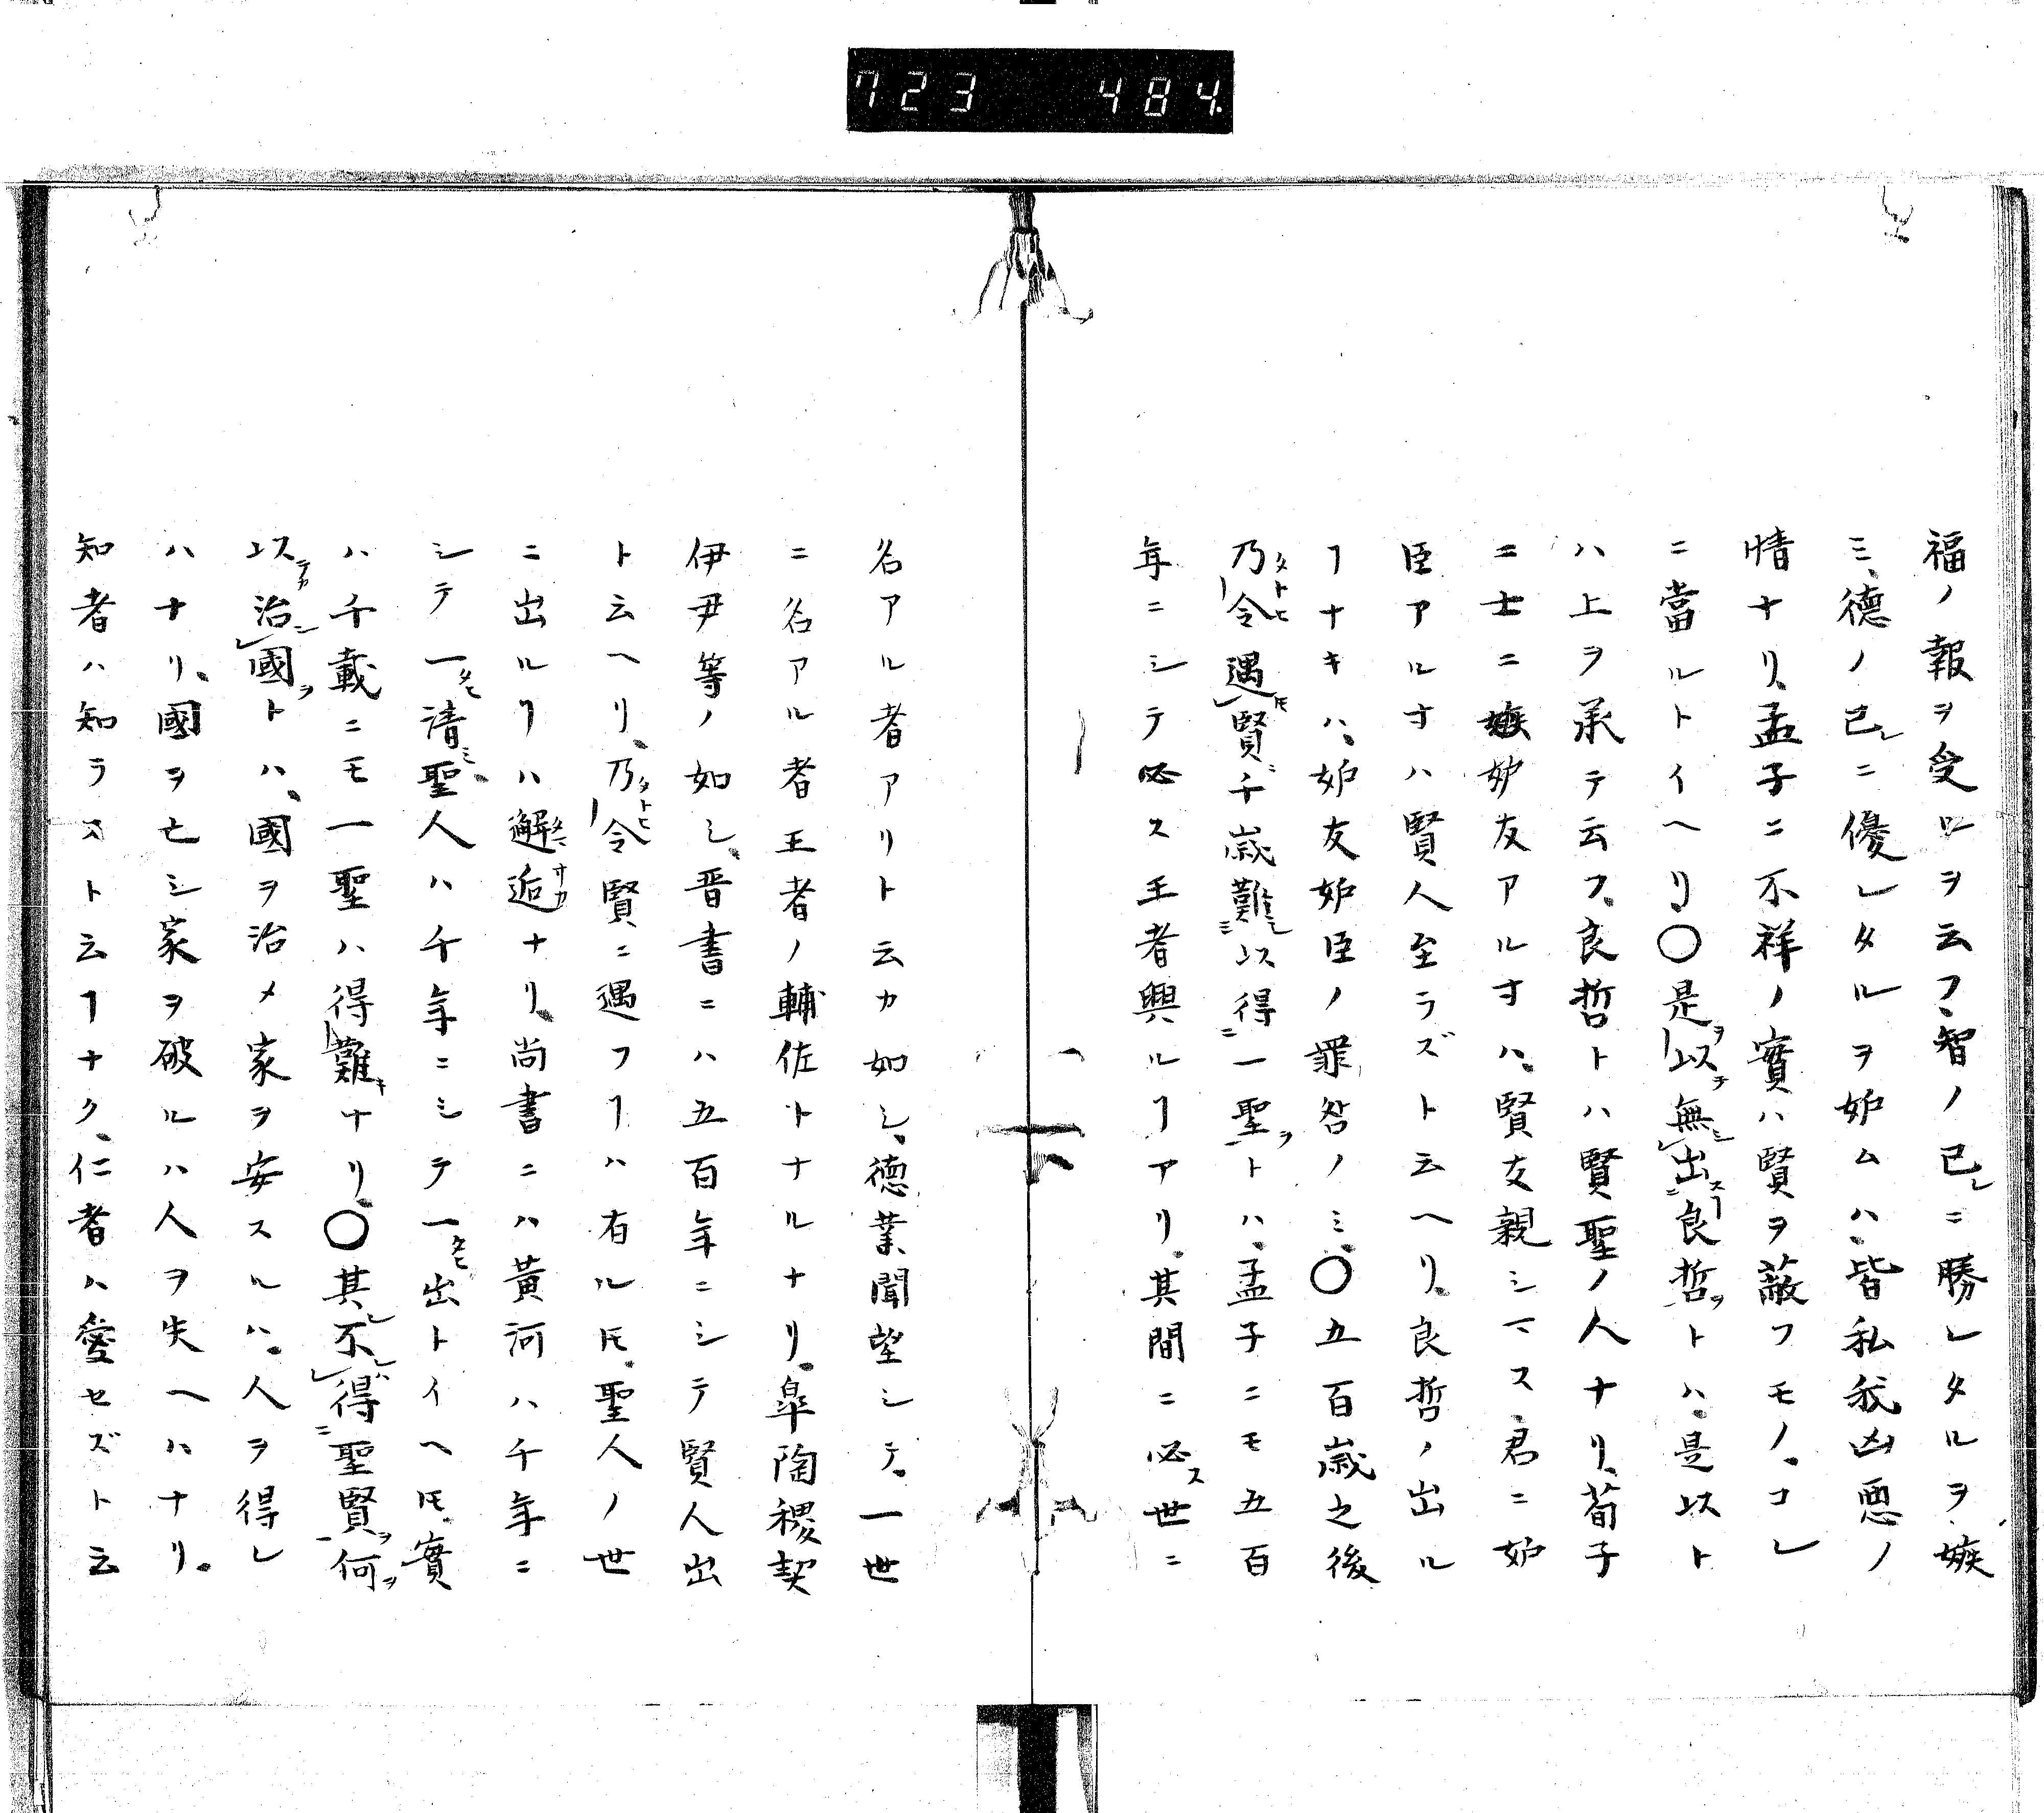 723 484
福ノ報ヲ受ヿヲ云フ、智ノ己レニ勝レタルヲ嫉
ミ、德ノ己レニ優レタルヲ妒ムハ、皆私我凶惡ノ
情ナリ、孟子ニ不祥ノ實ハ賢ヲ蔽フモノ、コレ
ニ當ルトイヘリ、〇是ヲ以テ無シ出スヿ良哲ヲトハ、是以ト
ハ上ヲ承テ云フ、良哲トハ賢聖ノ人ナリ、荀子
ニ士ニ嫉妒友アルオハ、賢友親シマス、君ニ妒
臣アルオハ賢人至ラズト云ヘリ、良哲ノ出ル
ヿナキハ、妒友妒臣ノ罪咎ノミ、〇五百歲之後
乃令タトヒ遇圧賢ニ千歲難シ以得一聖ヲトハ、孟子ニモ五百
年ニシテ必ス王者興ルヿアリ、其間ニ必ス世ニ
名アル者アリト云カ如シ、德業聞望シテ、一世
ニ名アル者王者ノ輔佐トナルナリ、皐陶稷契
伊尹等ノ如シ、晋書ニハ五百年ニシテ賢人出
ト云ヘリ、乃令タトヒ賢ニ遇フヿハ有ル圧、聖人ノ世
ニ出ルヿハ邂逅タマサカナリ、尚書ニハ黃河ハ千年ニ
シテ一タヒ清ミ、聖人ハ千年ニシテ一タヒ出トイヘ圧、實
ハ千載ニモ一聖ハ得難キナリ、〇其レ不レハ得聖賢ヲ何ヲ
以テカ治シ國ヲトハ、國ヲ治メ家ヲ安スルハ、人ヲ得レ
ハナリ、國ヲ亡シ家ヲ破ルハ人ヲ失ヘハナリ、
知者ハ知ラスト云ヿナク、仁者ハ愛セズト云